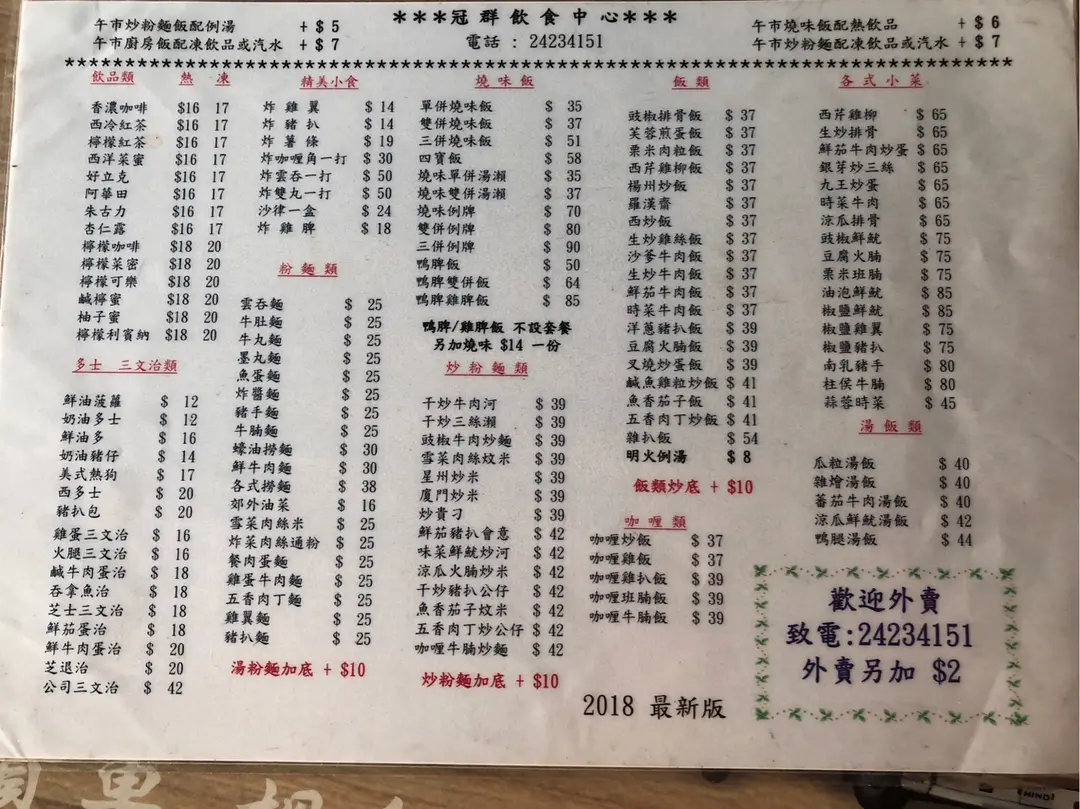 午市炒粉麵飯配例湯 + $ 5
午市廚房飯配凍飲品或汽水 + $ 7
***冠群飲食中心***
電話 : 24234151
午市燒味飯配熱飲品 + $ 6
午市炒粉麵配凍飲品或汽水 + $ 7
飲品類 熱 凍
香濃咖啡 $16 17
西冷紅茶 $16 17
檸檬紅茶 $16 17
西洋菜蜜 $16 17
好立克 $16 17
阿華田 $16 17
朱古力 $16 17
杏仁露 $16 17
檸檬咖啡 $18 20
檸檬菜密 $18 20
檸檬可樂 $18 20
鹹檸蜜 $18 20
柚子蜜 $18 20
檸檬利賓納 $18 20
多士 三文治類
鮮油菠蘿 $ 12
奶油多士 $ 12
鮮油多 $ 16
奶油豬仔 $ 14
美式熱狗 $ 17
西多士 $ 20
豬扒包 $ 20
雞蛋三文治 $ 16
火腿三文治 $ 16
鹹牛肉蛋治 $ 18
吞拿魚治 $ 18
芝士三文治 $ 18
鮮茄蛋治 $ 18
鮮牛肉蛋治 $ 20
芝退治 $ 20
公司三文治 $ 42
精美小食
炸雞翼 $ 14
炸豬扒 $ 14
炸薯條 $ 19
炸咖喱角一打 $ 30
炸雲吞一打 $ 50
炸雙丸一打 $ 50
沙律一盒 $ 24
炸雞脾 $ 18
粉麵類
雲吞麵 $ 25
牛肚麵 $ 25
牛丸麵 $ 25
墨丸麵 $ 25
魚蛋麵 $ 25
炸醬麵 $ 25
豬手麵 $ 25
牛腩麵 $ 25
蠔油撈麵 $ 30
鮮牛肉麵 $ 30
各式撈麵 $ 38
郊外油菜 $ 16
雪菜肉絲米 $ 25
炸菜肉絲通粉 $ 25
餐肉蛋麵 $ 25
雞蛋牛肉麵 $ 25
五香肉丁麵 $ 25
雞翼麵 $ 25
豬扒麵 $ 25
湯粉麵加底 + $10
燒味飯
單併燒味飯 $ 35
雙併燒味飯 $ 37
三併燒味飯 $ 51
四寶飯 $ 58
燒味單併湯瀨 $ 35
燒味雙併湯瀨 $ 37
燒味例牌 $ 70
雙併例牌 $ 80
三併例牌 $ 90
鴨脾飯 $ 50
鴨脾雙併飯 $ 64
鴨脾雞脾飯 $ 85
鴨脾/雞脾飯 不設套餐
另加燒味 $14 一份
炒粉麵類
干炒牛肉河 $ 39
干炒三絲瀨 $ 39
豉椒牛肉炒麵 $ 39
雪菜肉絲炆米 $ 39
星州炒米 $ 39
廈門炒米 $ 39
炒貴刁 $ 39
鮮茄豬扒會意 $ 42
味菜鮮魷炒河 $ 42
涼瓜火腩炒米 $ 42
干炒豬扒公仔 $ 42
魚香茄子炆米 $ 42
五香肉丁炒公仔 $ 42
咖喱牛腩炒麵 $ 42
炒粉麵加底 + $10
飯類
豉椒排骨飯 $ 37
芙蓉煎蛋飯 $ 37
栗米肉粒飯 $ 37
西芹雞柳飯 $ 37
楊州炒飯 $ 37
羅漢齋 $ 37
西炒飯 $ 37
生炒雞絲飯 $ 37
沙爹牛肉飯 $ 37
生炒牛肉飯 $ 37
鮮茄牛肉飯 $ 37
時菜牛肉飯 $ 37
洋蔥豬扒飯 $ 39
豆腐火腩飯 $ 39
叉燒炒蛋飯 $ 39
鹹魚雞粒炒飯 $ 41
魚香茄子飯 $ 41
五香肉丁炒飯 $ 41
雜扒飯 $ 54
明火例湯 $ 8
飯類炒底 + $10
咖喱類
咖喱炒飯 $ 37
咖喱雞飯 $ 37
咖喱雞扒飯 $ 39
咖喱班腩飯 $ 39
咖喱牛腩飯 $ 39
2018 最新版
各式小菜
西芹雞柳 $ 65
生炒排骨 $ 65
鮮茄牛肉炒蛋 $ 65
銀芽炒三絲 $ 65
九王炒蛋 $ 65
時菜牛肉 $ 65
涼瓜排骨 $ 65
豉椒鮮魷 $ 75
豆腐火腩 $ 75
栗米班腩 $ 75
油泡鮮魷 $ 85
椒鹽鮮魷 $ 85
椒鹽雞翼 $ 75
椒鹽豬扒 $ 75
南乳豬手 $ 80
柱侯牛腩 $ 80
蒜蓉時菜 $ 45
湯飯類
瓜粒湯飯 $ 40
雜燴湯飯 $ 40
蕃茄牛肉湯飯 $ 40
涼瓜鮮魷湯飯 $ 42
鴨腿湯飯 $ 44
歡迎外賣
致電:24234151
外賣另加 $2